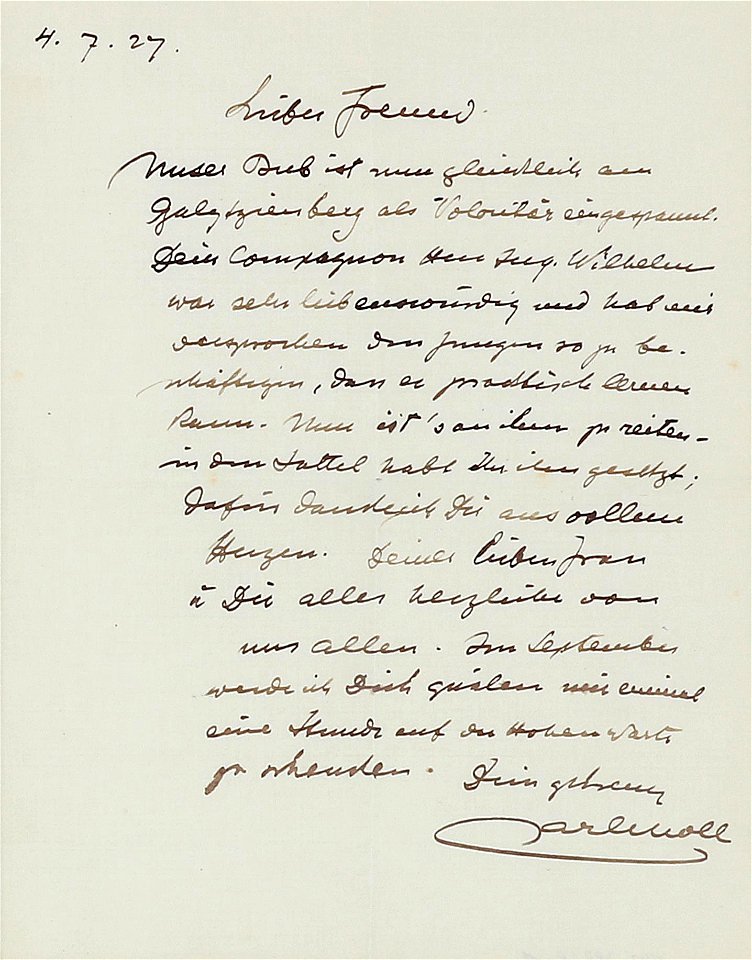 4. 7. 27.
Lieber Freund.
Unser Bub ist nun glücklich am
Galytzienberg als Volontär eingespannt.
Dein Compagnon Herr Ing. Wilhelm
war sehr liebenswürdig und hat mir
versprochen den Jungen so zu be-
schäftigen, dass er praktisch lernen
kann. Nun ist's an ihm zu reiten –
in den Sattel habt Ihr ihn gesetzt;
dafür dank ich Dir aus vollem
Herzen. Deiner lieben Frau
u Dir alles herzliche von
uns allen. Im September
werde ich Dich quälen mir einmal
eine Stunde auf der Hohen Warte
zu schenken. Dein getreuer
Carl Moll